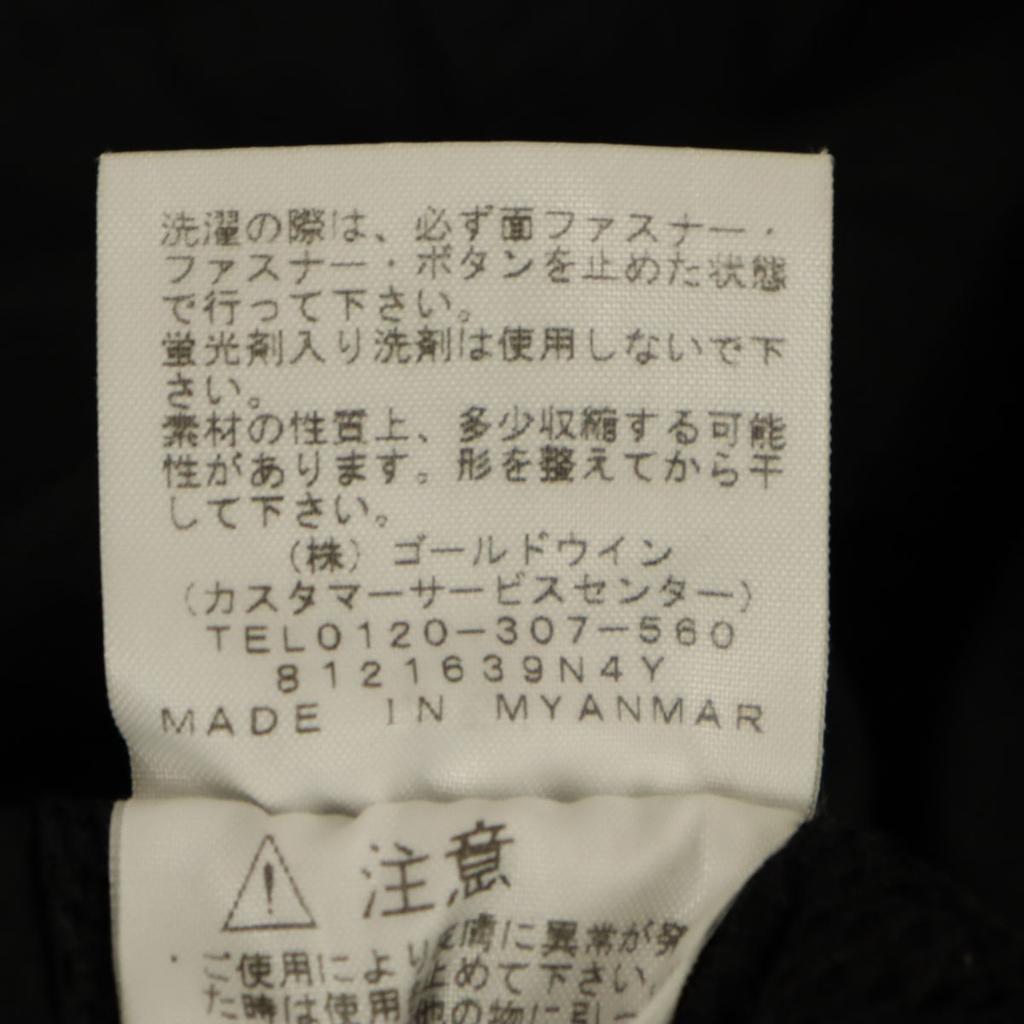 洗濯の際は、必ず面ファスナー・
ファスナー・ボタンを止めた状態
で行って下さい。
蛍光剤入り洗剤は使用しないで下
さい。
素材の性質上、多少収縮する可能
性があります。形を整えてから干
して下さい。
(株)ゴールドウイン
(カスタマーサービスセンター)
TEL0120-307-560
8121639N4Y
MADE IN MYANMAR
注意
・ご使用により皮膚に異常が発
止めて下さい。
た時は使用 他の物に引